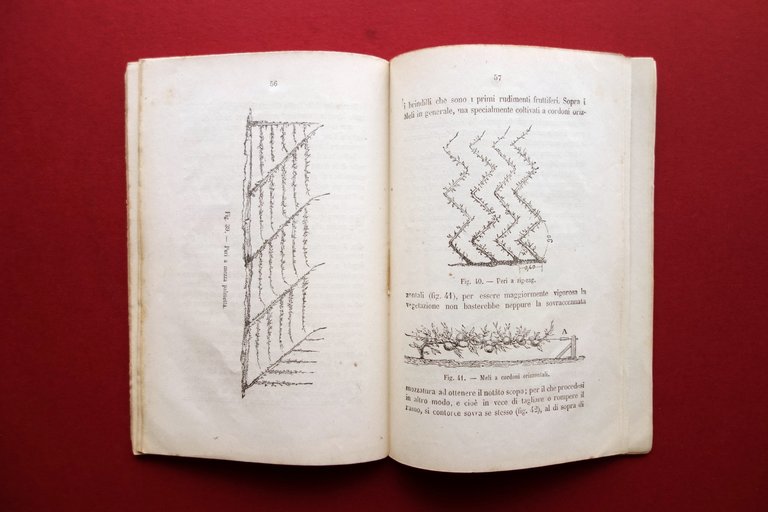 56
Fig. 39. — Peri a mezza palmetta.
57
i brindilli che sono i primi rudimenti fruttiferi. Sopra i
Meli in generale, ma specialmente coltivati a cordoni oriz-
0,40
Fig. 40. — Peri a zig-zag.
zontali (fig. 41), per essere maggiormente vigorosa la
vegetazione non basterebbe neppure la sovraccennata
A
Fig. 41. — Meli a cordoni orizzontali.
mozzatura ad ottenere il notato scopo; per il che procedesi
in altro modo, e cioè in vece di tagliare o rompere il
ramo, si contorce sovra se stesso (fig. 42), al di sopra di